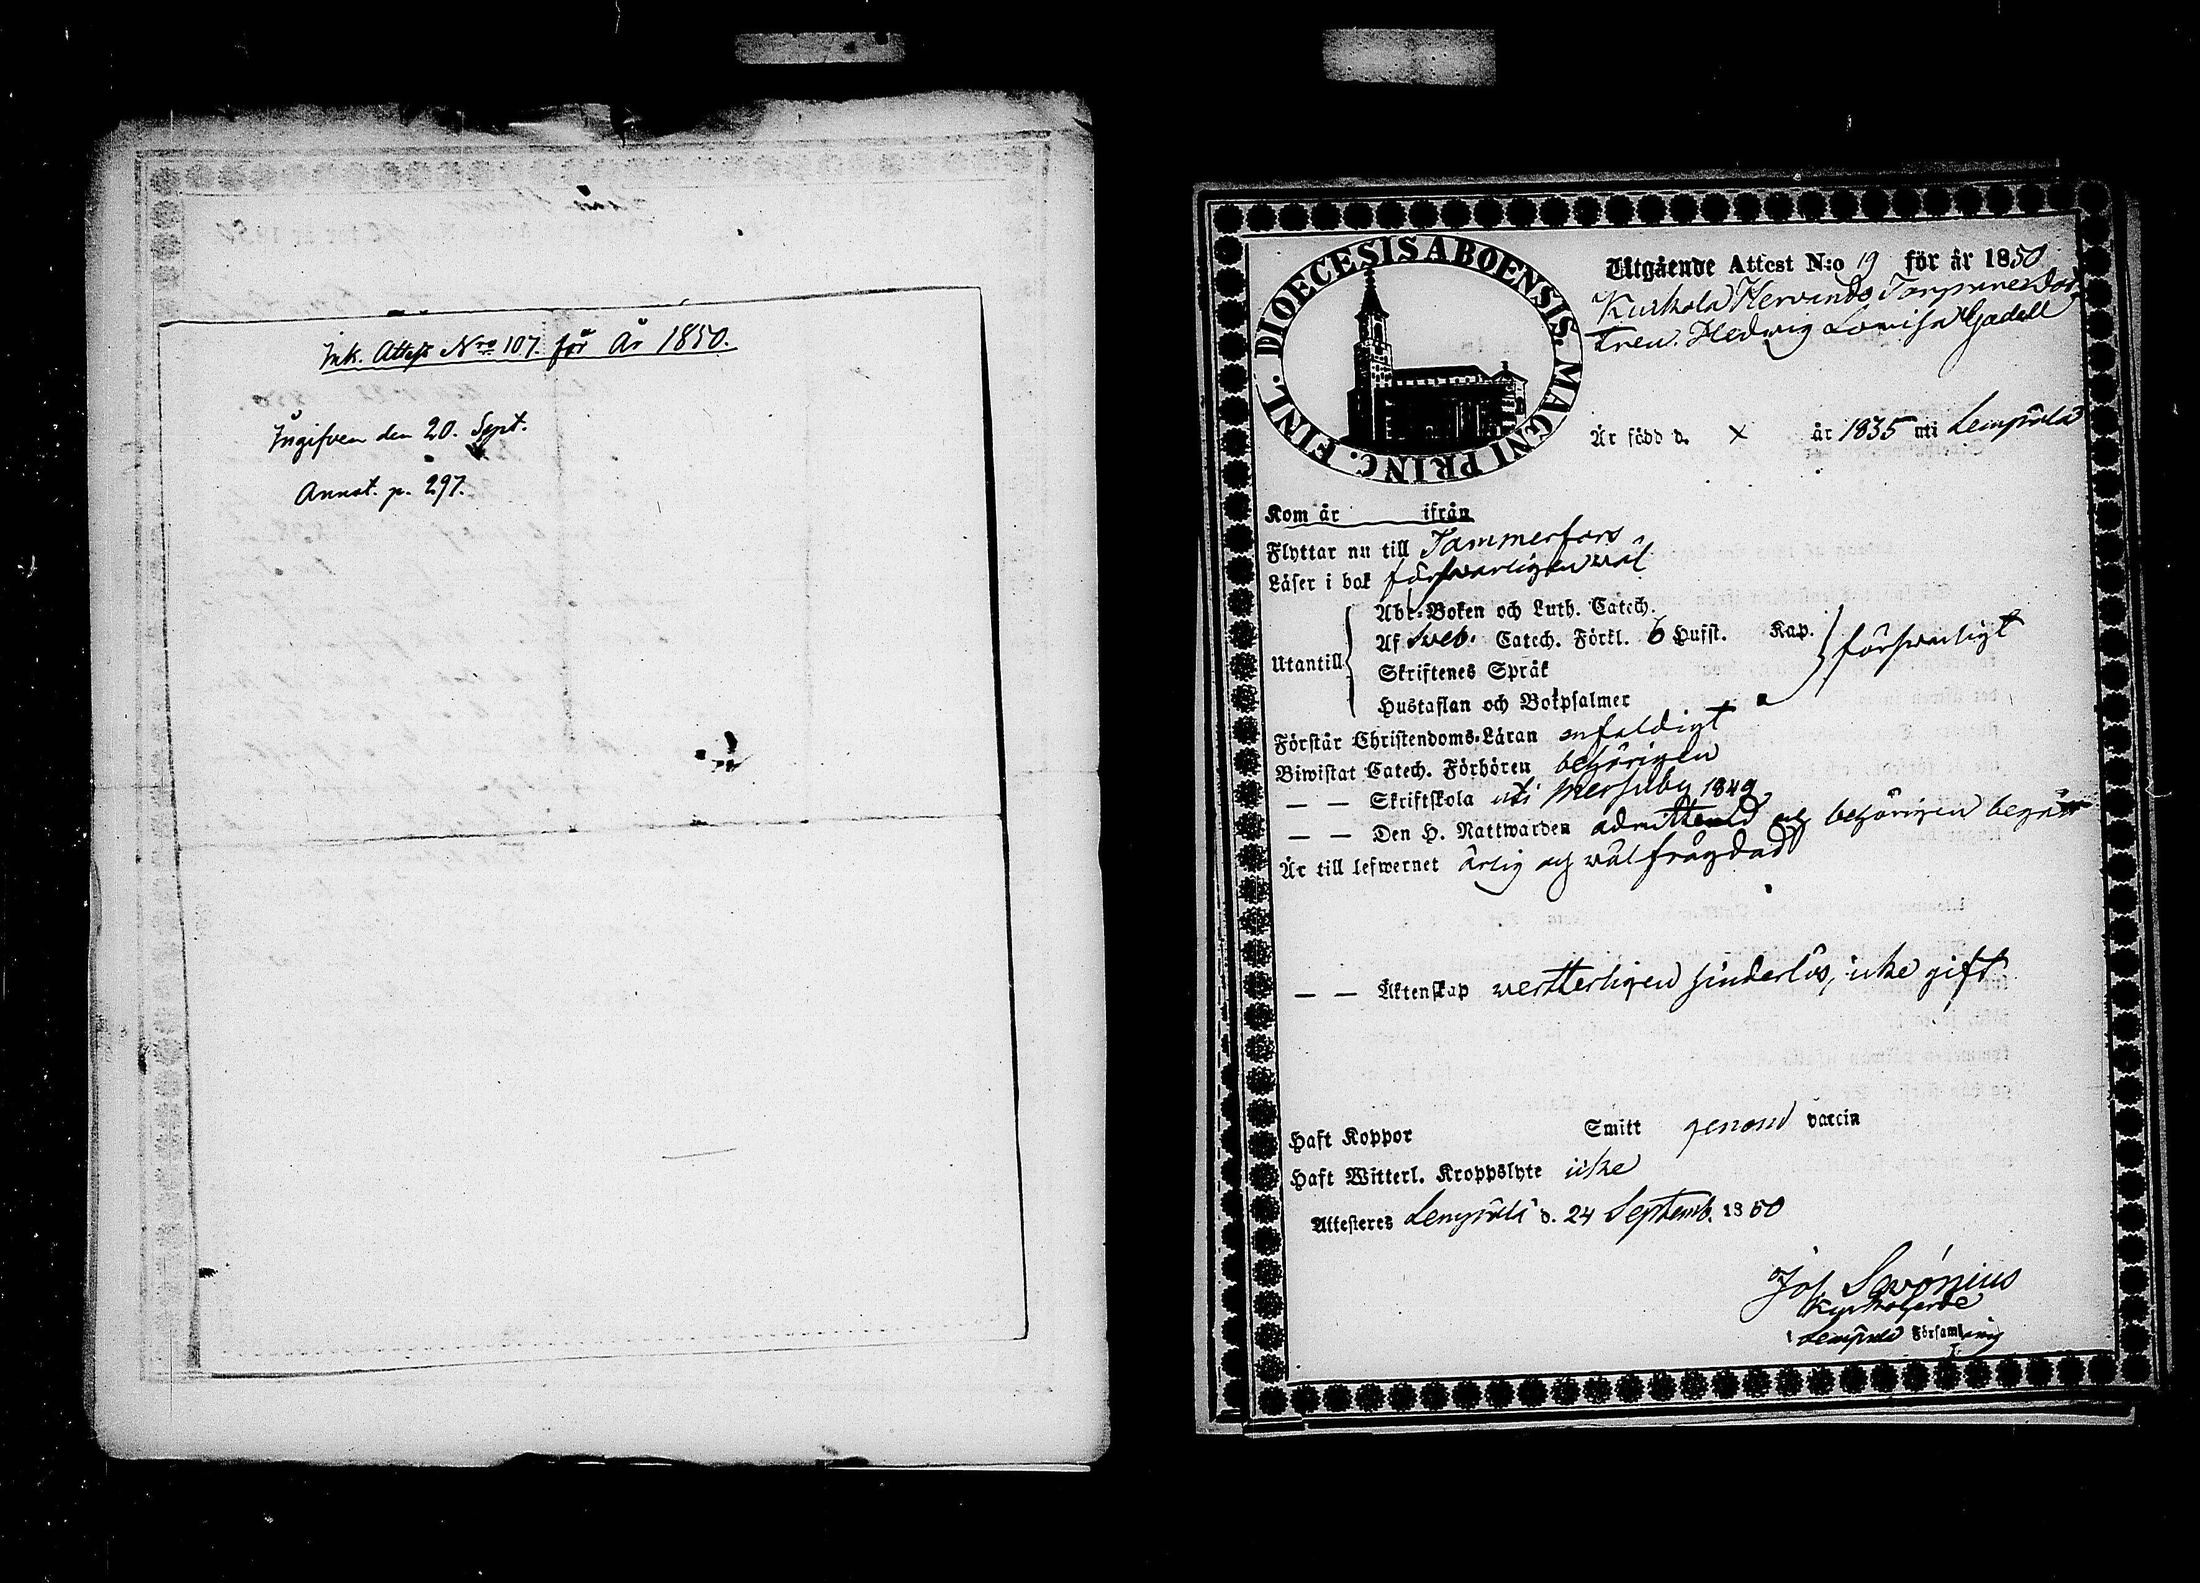 Ink. Attest Nro 107. för År 1850.
Ingifven den 20. Sept.
Annot. p. 297.
DIOECESIS ABOENSIS. MAGNI PRINC. FINL.
Utgående Attest N:o 19 för år 1850
Kuckola Hedwig Lovisa
Är född d. x år 1835 uti Lempälä
Kom år ifrån
Flyttar nu till Tammerfors
Läser i bok försvarligen väl
Abc-Boken och Luth. Catech.
Af Sveb. Catech. Förkl. 6 Hufst. Kap.
Utantill försvarligt
Skriftenes Språk
Hustaflan och Botpsalmer
Förstår Christendoms-Läran enfaldigt
Biwistat Catech. Förhören behörigen
— — Skriftskola uti Messuby 1849
— — Den H. Nattwarden admitterad och behörigen begått
Är till lefwernet ärlig och wälfrägdad
— — Äktenskap hinderlös, icke gift
Haft Koppor Smitt genom vaccin
Haft Witterl. Kroppslyte icke
Attesteres Lempälä d. 24 Septemb. 1850
Jos Savonius
Kyrkoherde
i Lempälä Församling